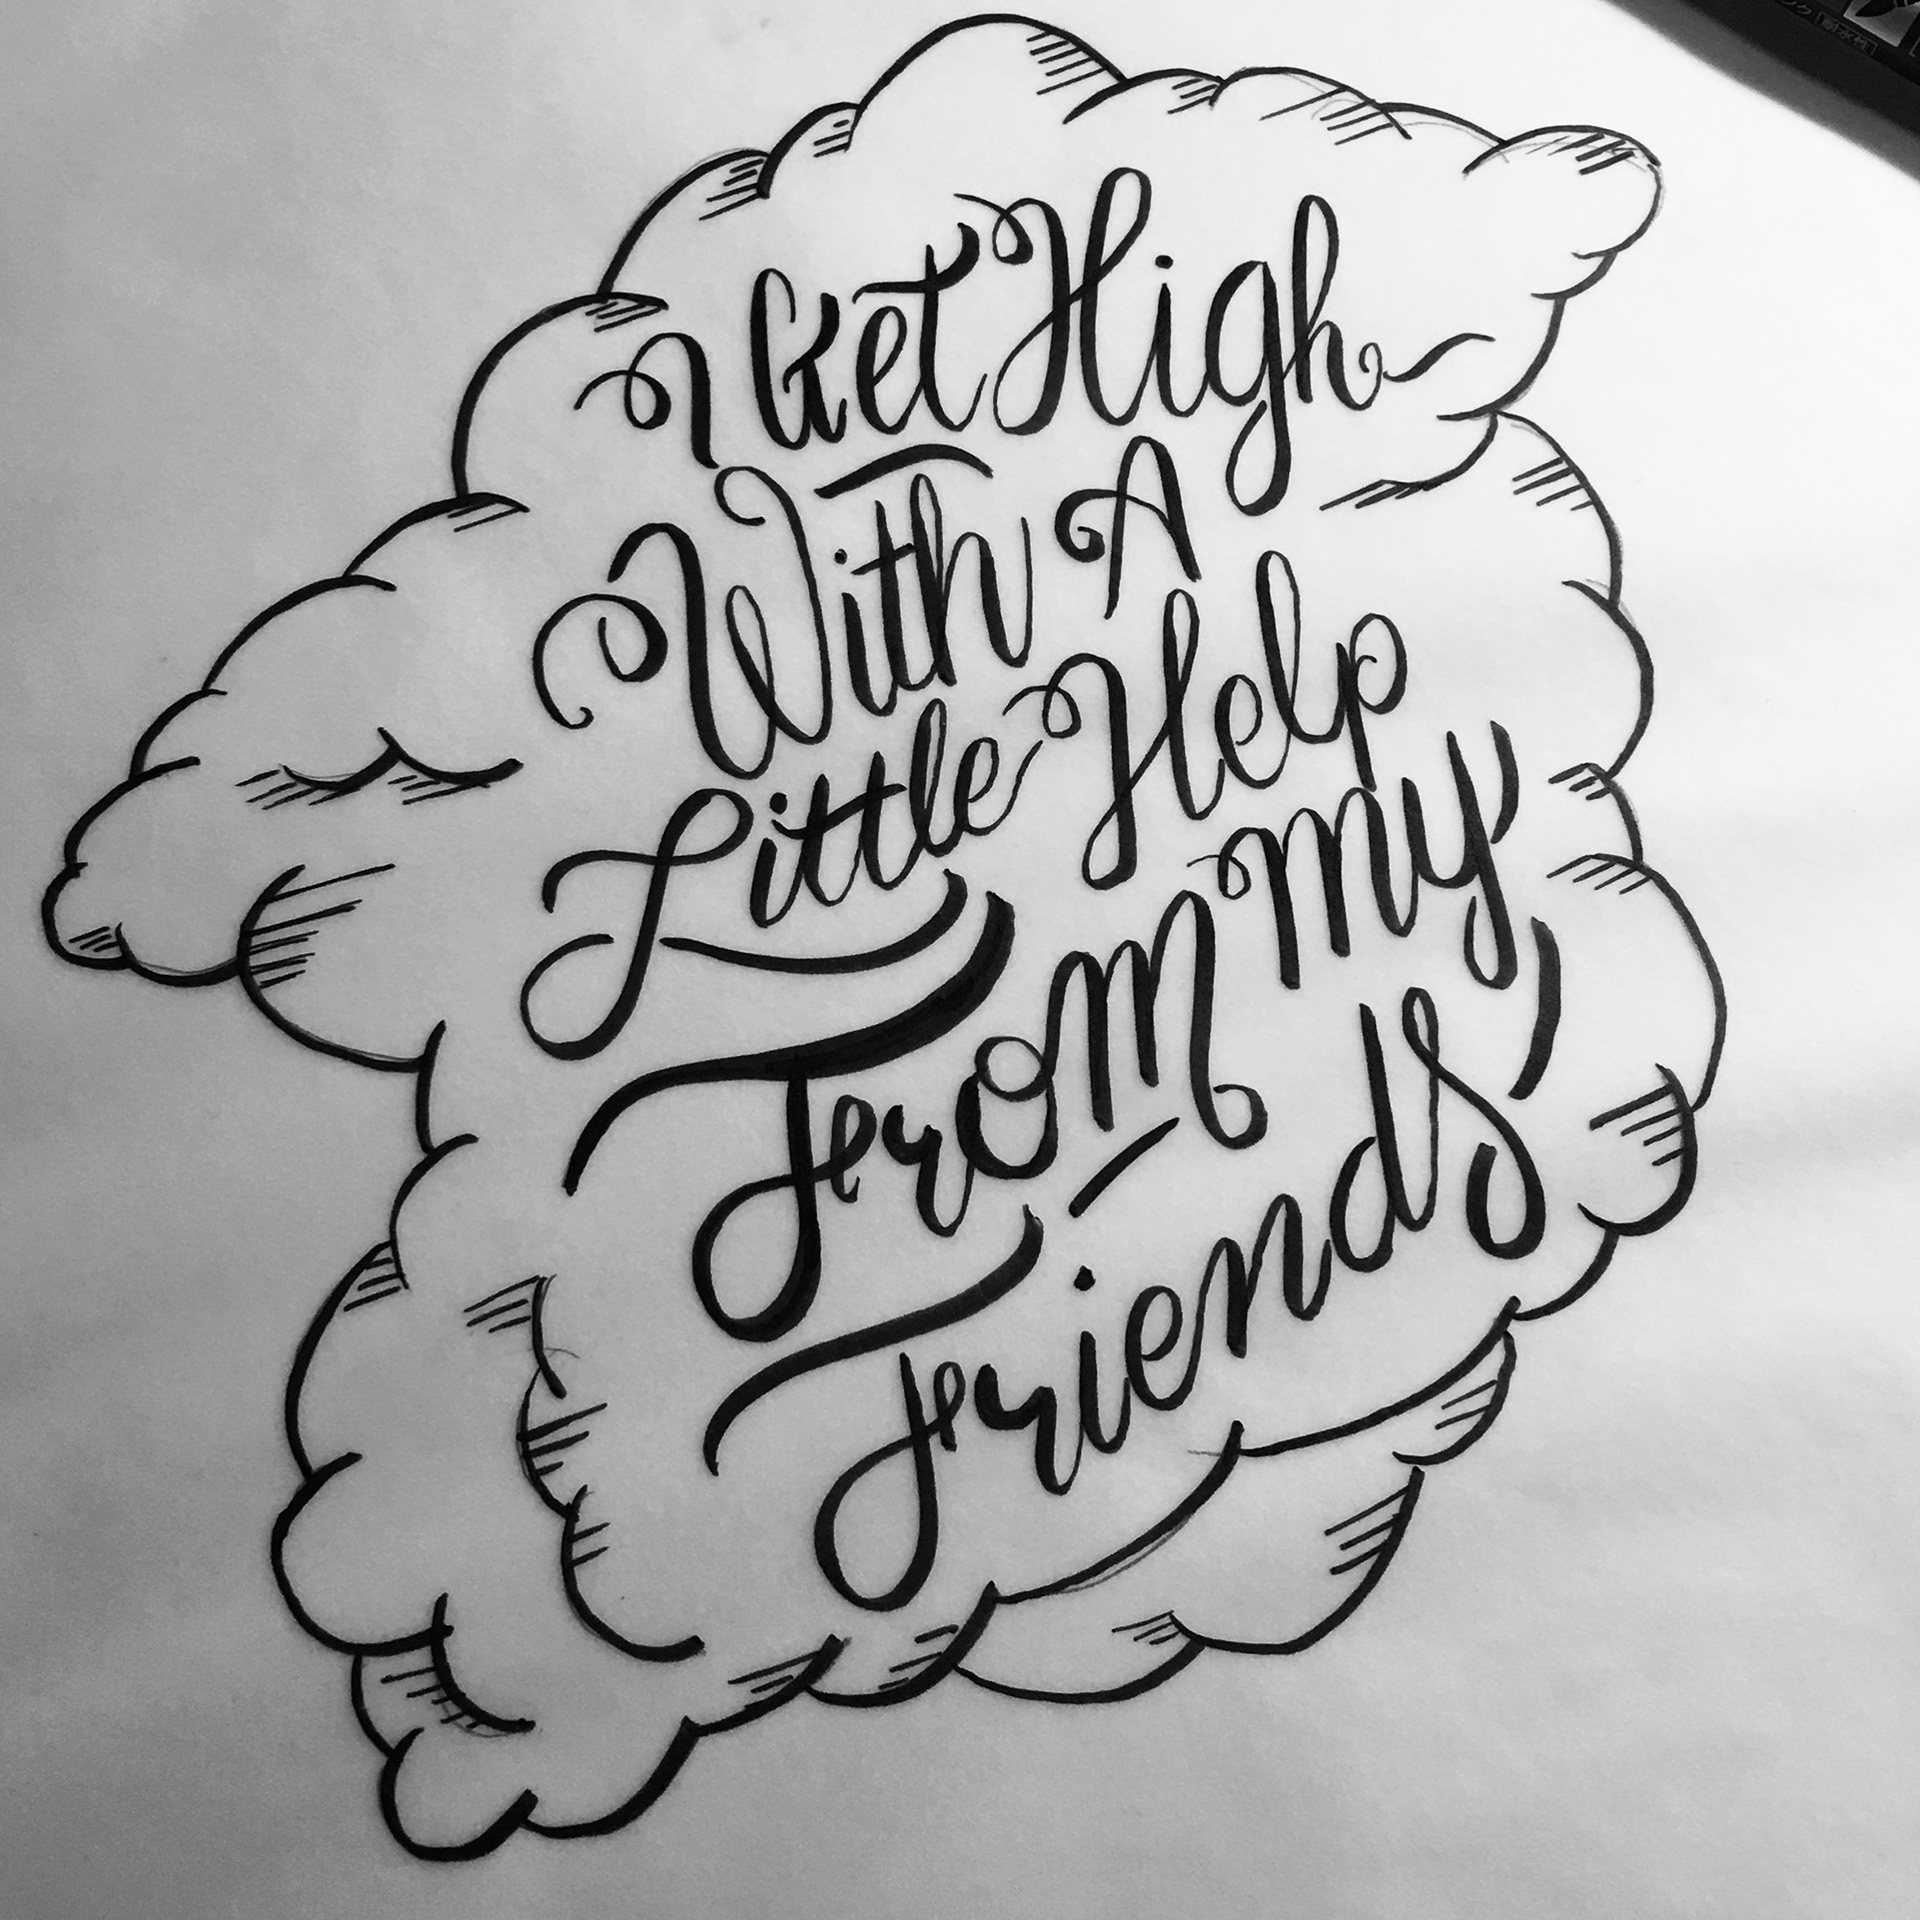 Get High
With A
Little Help
From my
Friends